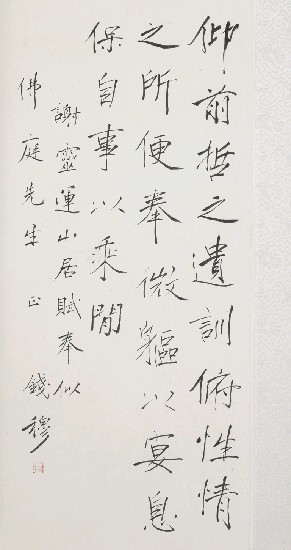 仰前哲之遺訓俯性情
之所便奉微軀以宴息
保自事以乘閒
謝靈運山居賦奉似
佛庭先生正 錢穆